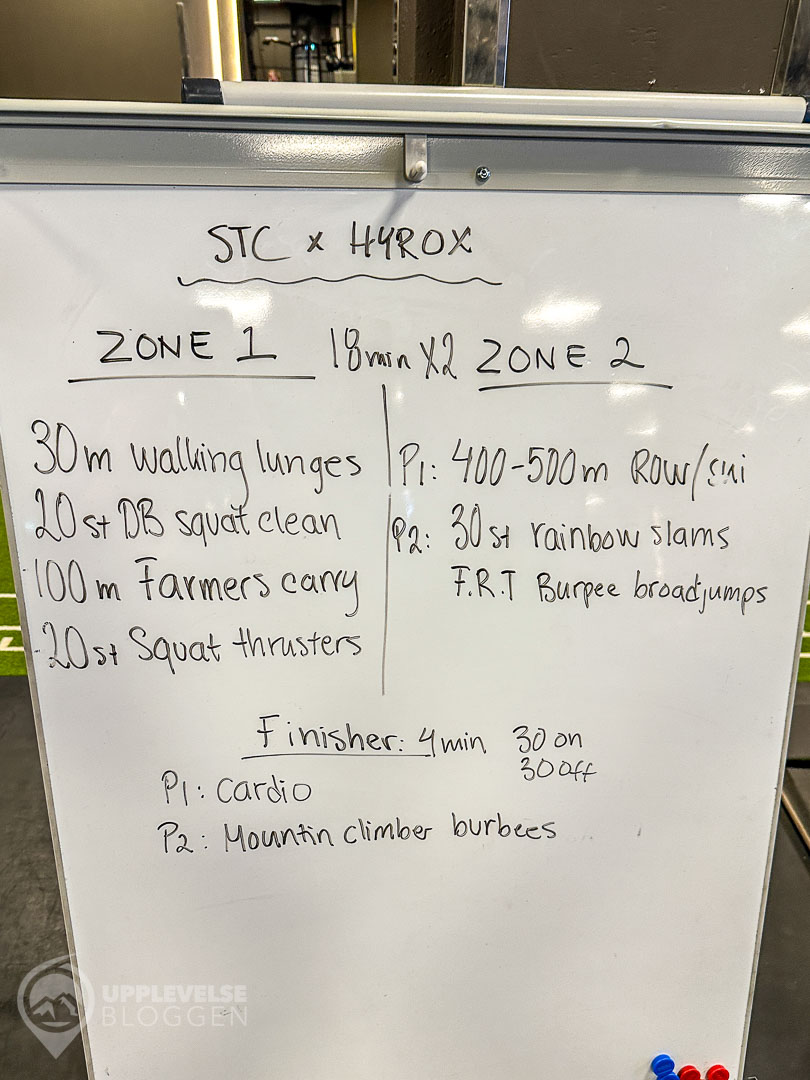 STC x HYROX
ZONE 1 18min X2 ZONE 2
30m walking lunges
20st DB squat clean
100m Farmers carry
20st Squat thrusters
P1: 400-500m Row/
P2: 30st rainbow slams
F.R.T Burpee broadjumps
Finisher: 4min 30 on
30 off
P1: Cardio
P2: Mountin climber burbees
UPPLEVELSE
BLOGGEN